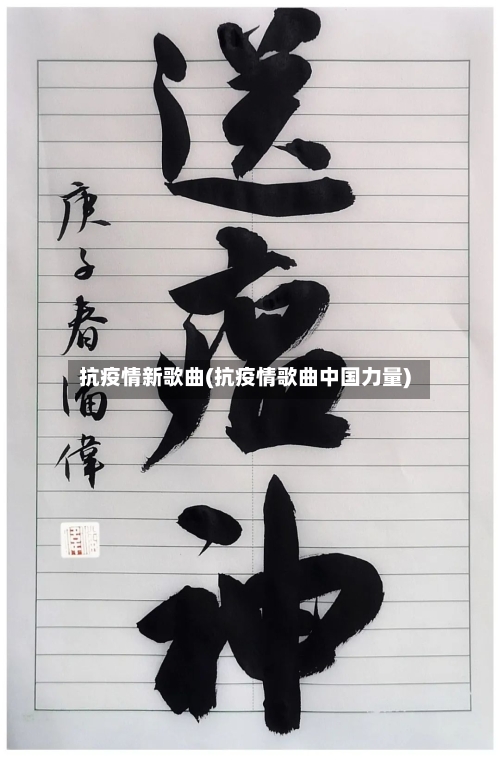 送瘟神
庚子春汤伟
抗疫情新歌曲(抗疫情歌曲中国力量)